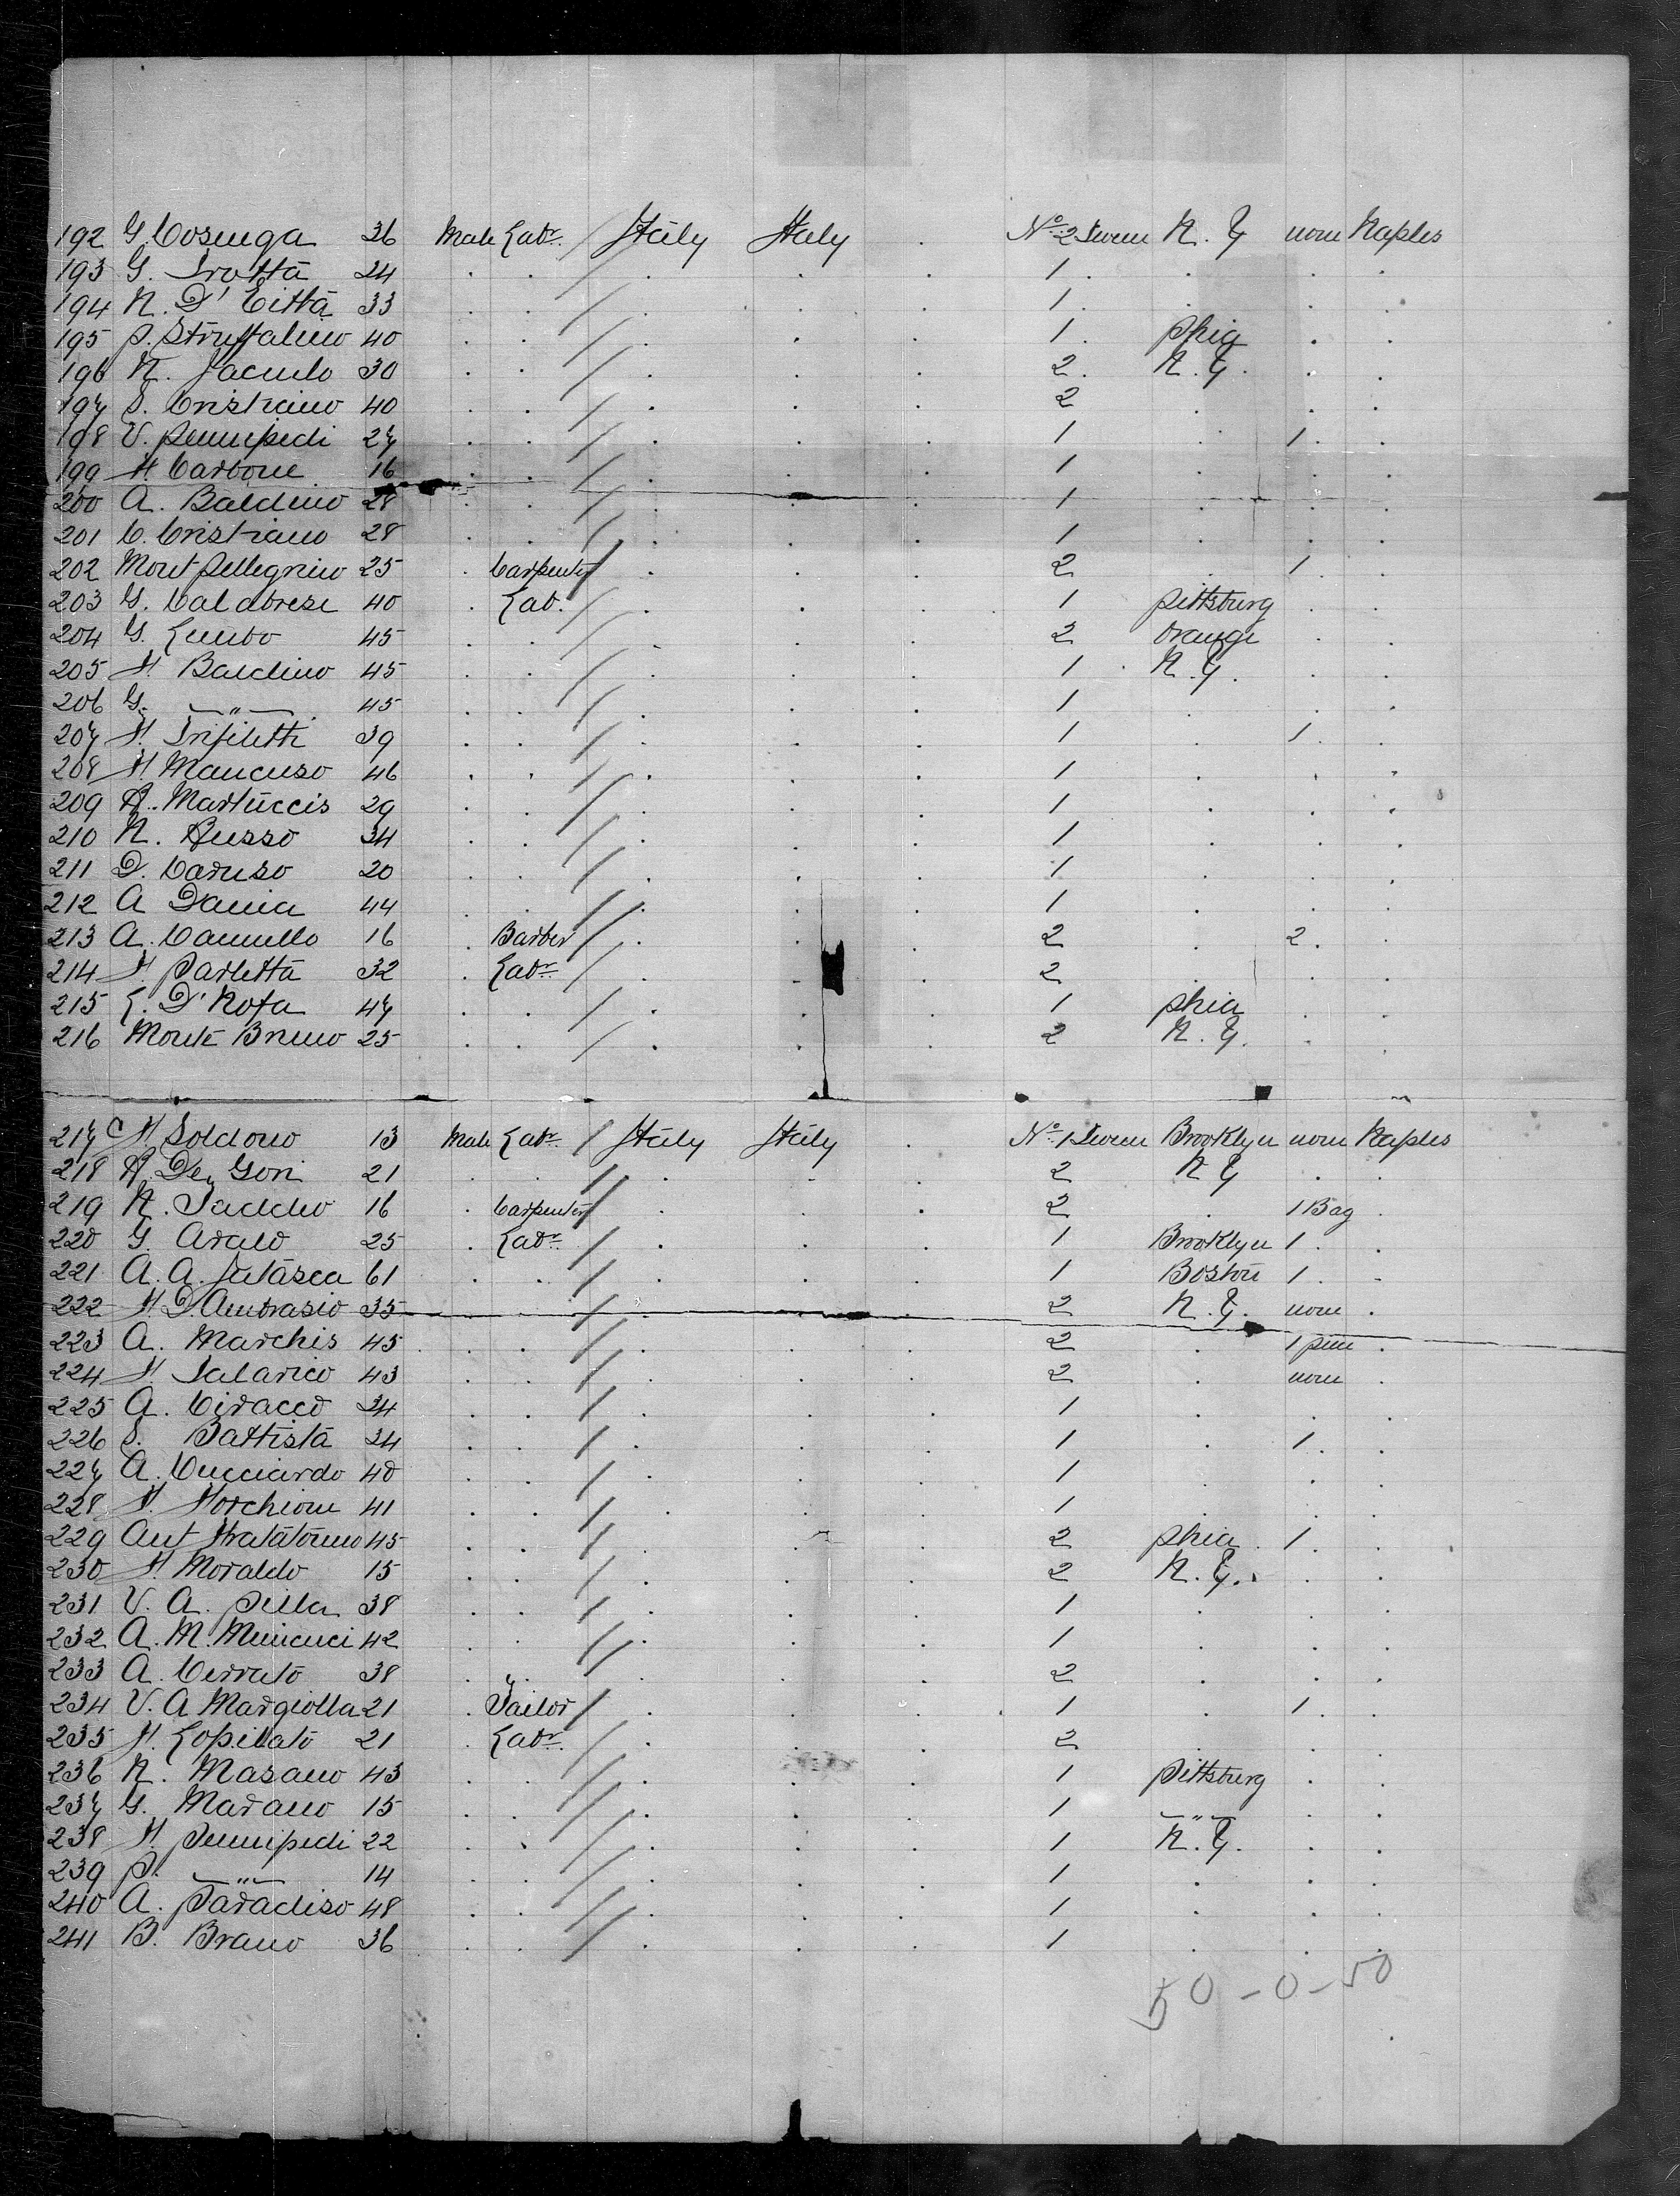 192 G. Cosenga 36 Male Labr. / Italy Italy . No. 2 N. Y none Naples
193 G. Trotta 24 . . / . . . 1 . . . .
194 N. D' Citta 33 . . / . . . 1 . . . .
195 P. 40 . . / . . . 1 . Phia . .
196 N. Jacuulo 30 . . / . . . 2 . N. Y. . .
197 S. Cristiano 40 . . / . . . 2 . . .
198 V. Pennipedi 27 . . / . . . 1 . 1 . .
199 M. Carbone 16 . . / . . . 1 . . .
200 A. Baldino 28 . . / . . . 1 . . .
201 C. Cristiano 28 . . / . . . 1 . . .
202 Mont Pellegrino 25 . Carpenter / . . . 2 . 1 . .
203 G. Calabrese 40 . Lab. / . . . 1 Pittsburg . .
204 G. Lembo 45 . . / . . . 2 Orange . .
205 M. Baldino 45 . . / . . . 1 . N. Y. . .
206 G. —"— 45 . . / . . . 1 . . .
207 M. Trifiletti 39 . . / . . . 1 . 1 . .
208 M. Mancuso 46 . . / . . . 1 . . .
209 R. Martuccis 29 . . / . . . 1 . . .
210 N. Russo 34 . . / . . . 1 . . .
211 D. Caruso 20 . . / . . . 1 . . .
212 A Dania 44 . . / . . . 1 . . .
213 A. Cannello 16 . Barber / . . . 2 . 2 . .
214 M. Parletta 32 . Labr. / . . . 2 . . .
215 L. D'Nofa 47 . . / . . . 1 Phia . .
216 Monte Bruno 25 . . / . . . 2 N. Y. . .
217 M. Soldono 13 Male Labr. / Italy Italy . No. 1 Brooklyn none Naples
218 R. De Gori 21 . . / . . . 2 N Y . .
219 N. Taddeo 16 . Carpenter / . . . 2 . 1 Bag .
220 G. Arald 25 . Labr. / . . . 1 Brooklyn 1 . .
221 A. A. Jutasca 61 . . / . . . 1 Boston 1 . .
222 M D. Ambrasio 35 . . / . . . 2 N. Y. none .
223 A. Marchis 45 . . / . . . 2 . 1 .
224 M. Talarico 43 . . / . . . 2 . none .
225 A. Ciracco 34 . . / . . . 1 . . .
226 S. Battista 34 . . / . . . 1 . 1 . .
227 A. Cucciardo 40 . . / . . . 1 . . .
228 M. Morchione 41 . . / . . . 1 . . .
229 Ant 45 . . / . . . 2 Phia . 1 . .
230 M. Moraldo 15 . . / . . . 2 N. Y. . .
231 V. A. Pilla 38 . . / . . . 1 . . .
232 A. M. Minicuci 42 . . / . . . 1 . . .
233 A. Cerrato 38 . . / . . . 2 . . .
234 V. A Margiolla 21 . Tailor / . . . 1 . 1 . .
235 M. Lopilato 21 . Labr. / . . . 2 . . .
236 N. Masano 43 . . / . . . 1 Pittsburg . .
237 G. Marano 15 . . / . . . 1 —"— . .
238 M. Pennipedi 22 . . / . . . 1 N. Y. . .
239 P. —"— 14 . . / . . . 1 . . .
240 A. Paradiso 48 . . / . . . 1 . . .
241 B. Brano 36 . . / . . . 1 . . .
50 - 0 - 50